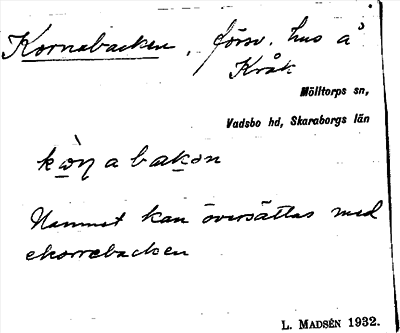 Kornabacken, försv. hus å
Kråk
Mölltorps sn,
Vadsbo hd, Skaraborgs län
kɷ̀ŋabakən
Namnet kan översättas med
ekorrebacken
L. MADSÉN 1932.